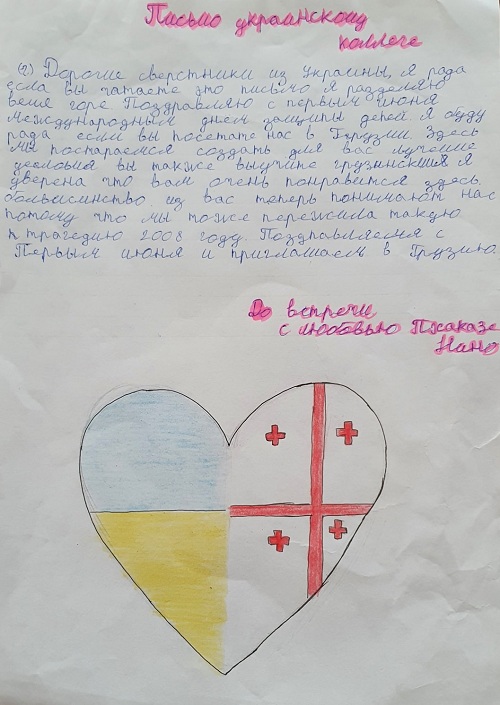 Письмо украинскому
коллеге
(2) Дорогие сверстники из Украины, я рада
если вы читаете это письмо я разделяю
ваше горе Поздравляю с первым июня
международным днем защиты детей. Я буду
рада если вы посетате нас в Грузии. Здесь
мы постараемся создать для вас лучшие
условия вы также выучите грузинский я
уверена что вам очень понравится здесь.
большинство из вас теперь понимают нас
потому что мы тоже пережила такую
трагедию 2008 году. Поздравляем с
Первым июня и приглашаем в Грузию.
До встречи
с любовью
Нано